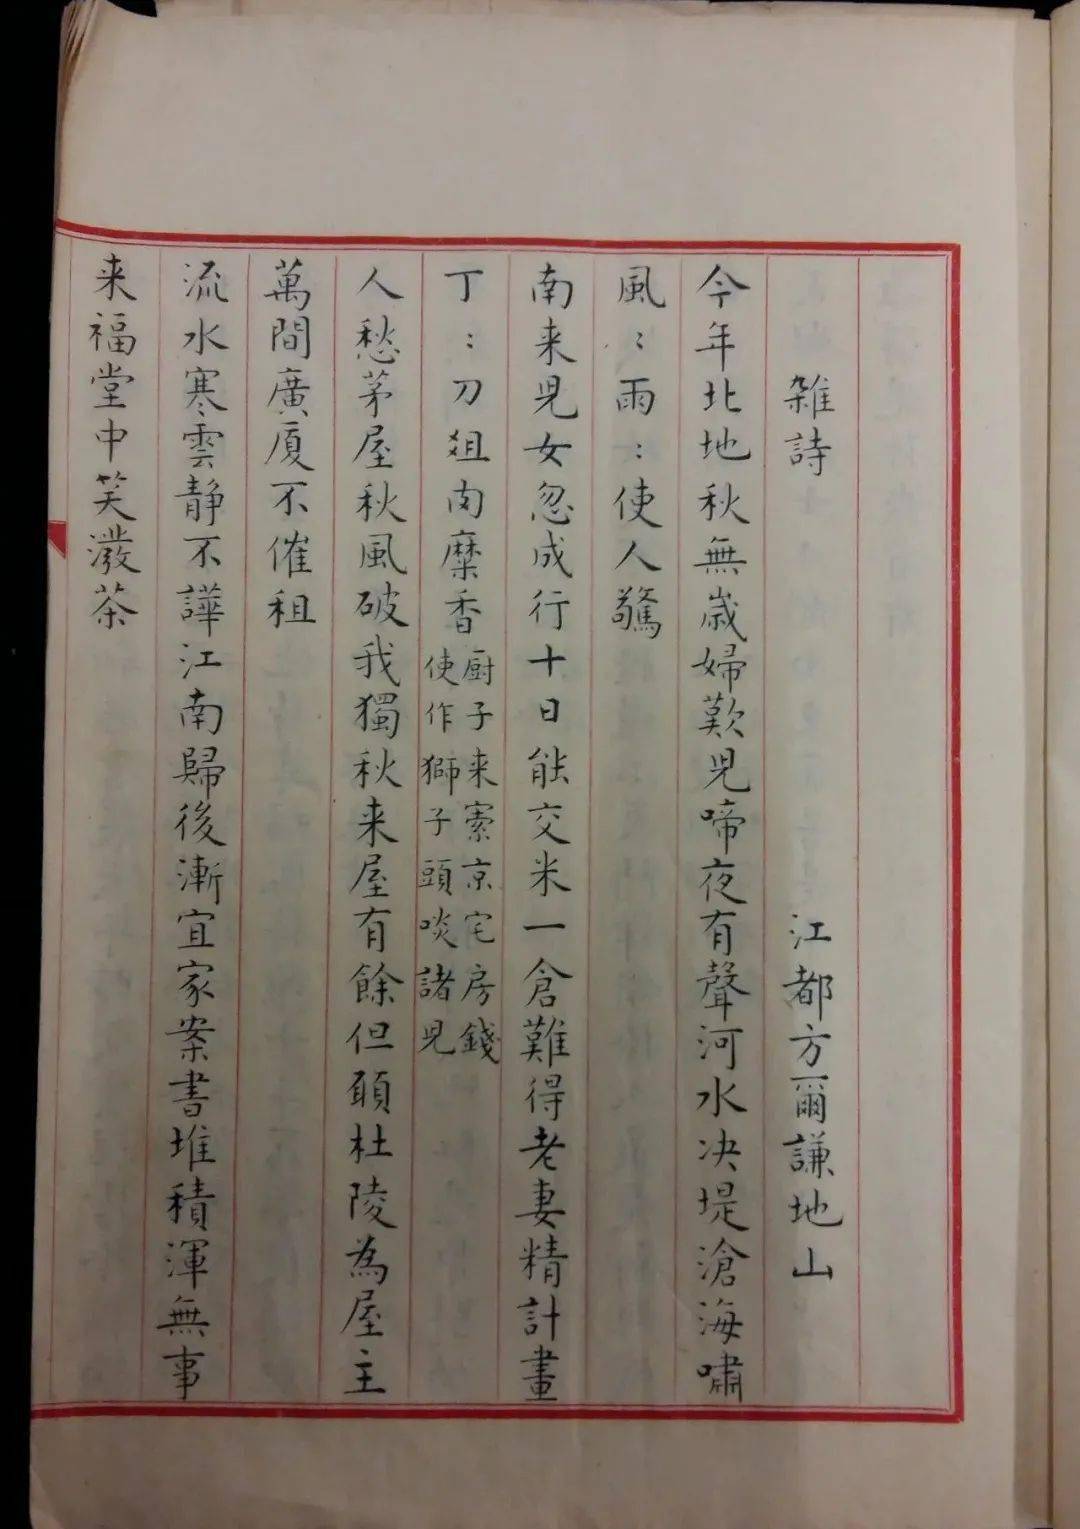 雜詩 江都方爾謙地山
今年北地秋無歲婦歎兒啼夜有聲河水决堤滄海嘯
風：雨：使人驚
南来兒女忽成行十日能交米一倉難得老妻精計畫
丁：刀俎肉糜香
厨子来索京宅房錢
使作獅子頭啖諸兒
人愁茅屋秋風破我獨秋来屋有餘但願杜陵為屋主
萬間廣厦不催租
流水寒雲静不譁江南歸後漸宜家案書堆積渾無事
来福堂中笑潑茶